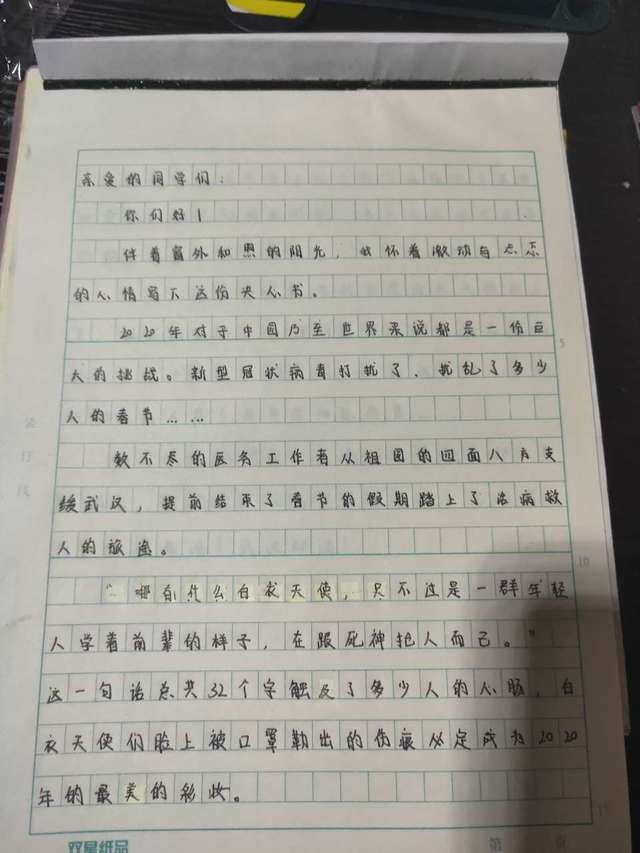 亲爱的同学们:
你们好!
伴着窗外和煦的阳光,我怀着激动与忐忑
的心情写下这份决心书。
2020年对于中国乃至世界来说都是一份巨
大的挑战。新型冠状病毒打扰了、扰乱了多少
人的春节……
数不尽的医务工作者从祖国的四面八方支
援武汉,提前结束了春节的假期踏上了治病救
人的旅途。
“哪有什么白衣天使,只不过是一群年轻
人学着前辈的样子,在跟死神抢人而已。”
这一句话总共32个字触及了多少人的心肠,白
衣天使们脸上被口罩勒出的伤痕必定成为2020
年的最美的彩妆。
5
10
装订线
双星纸品
第
页